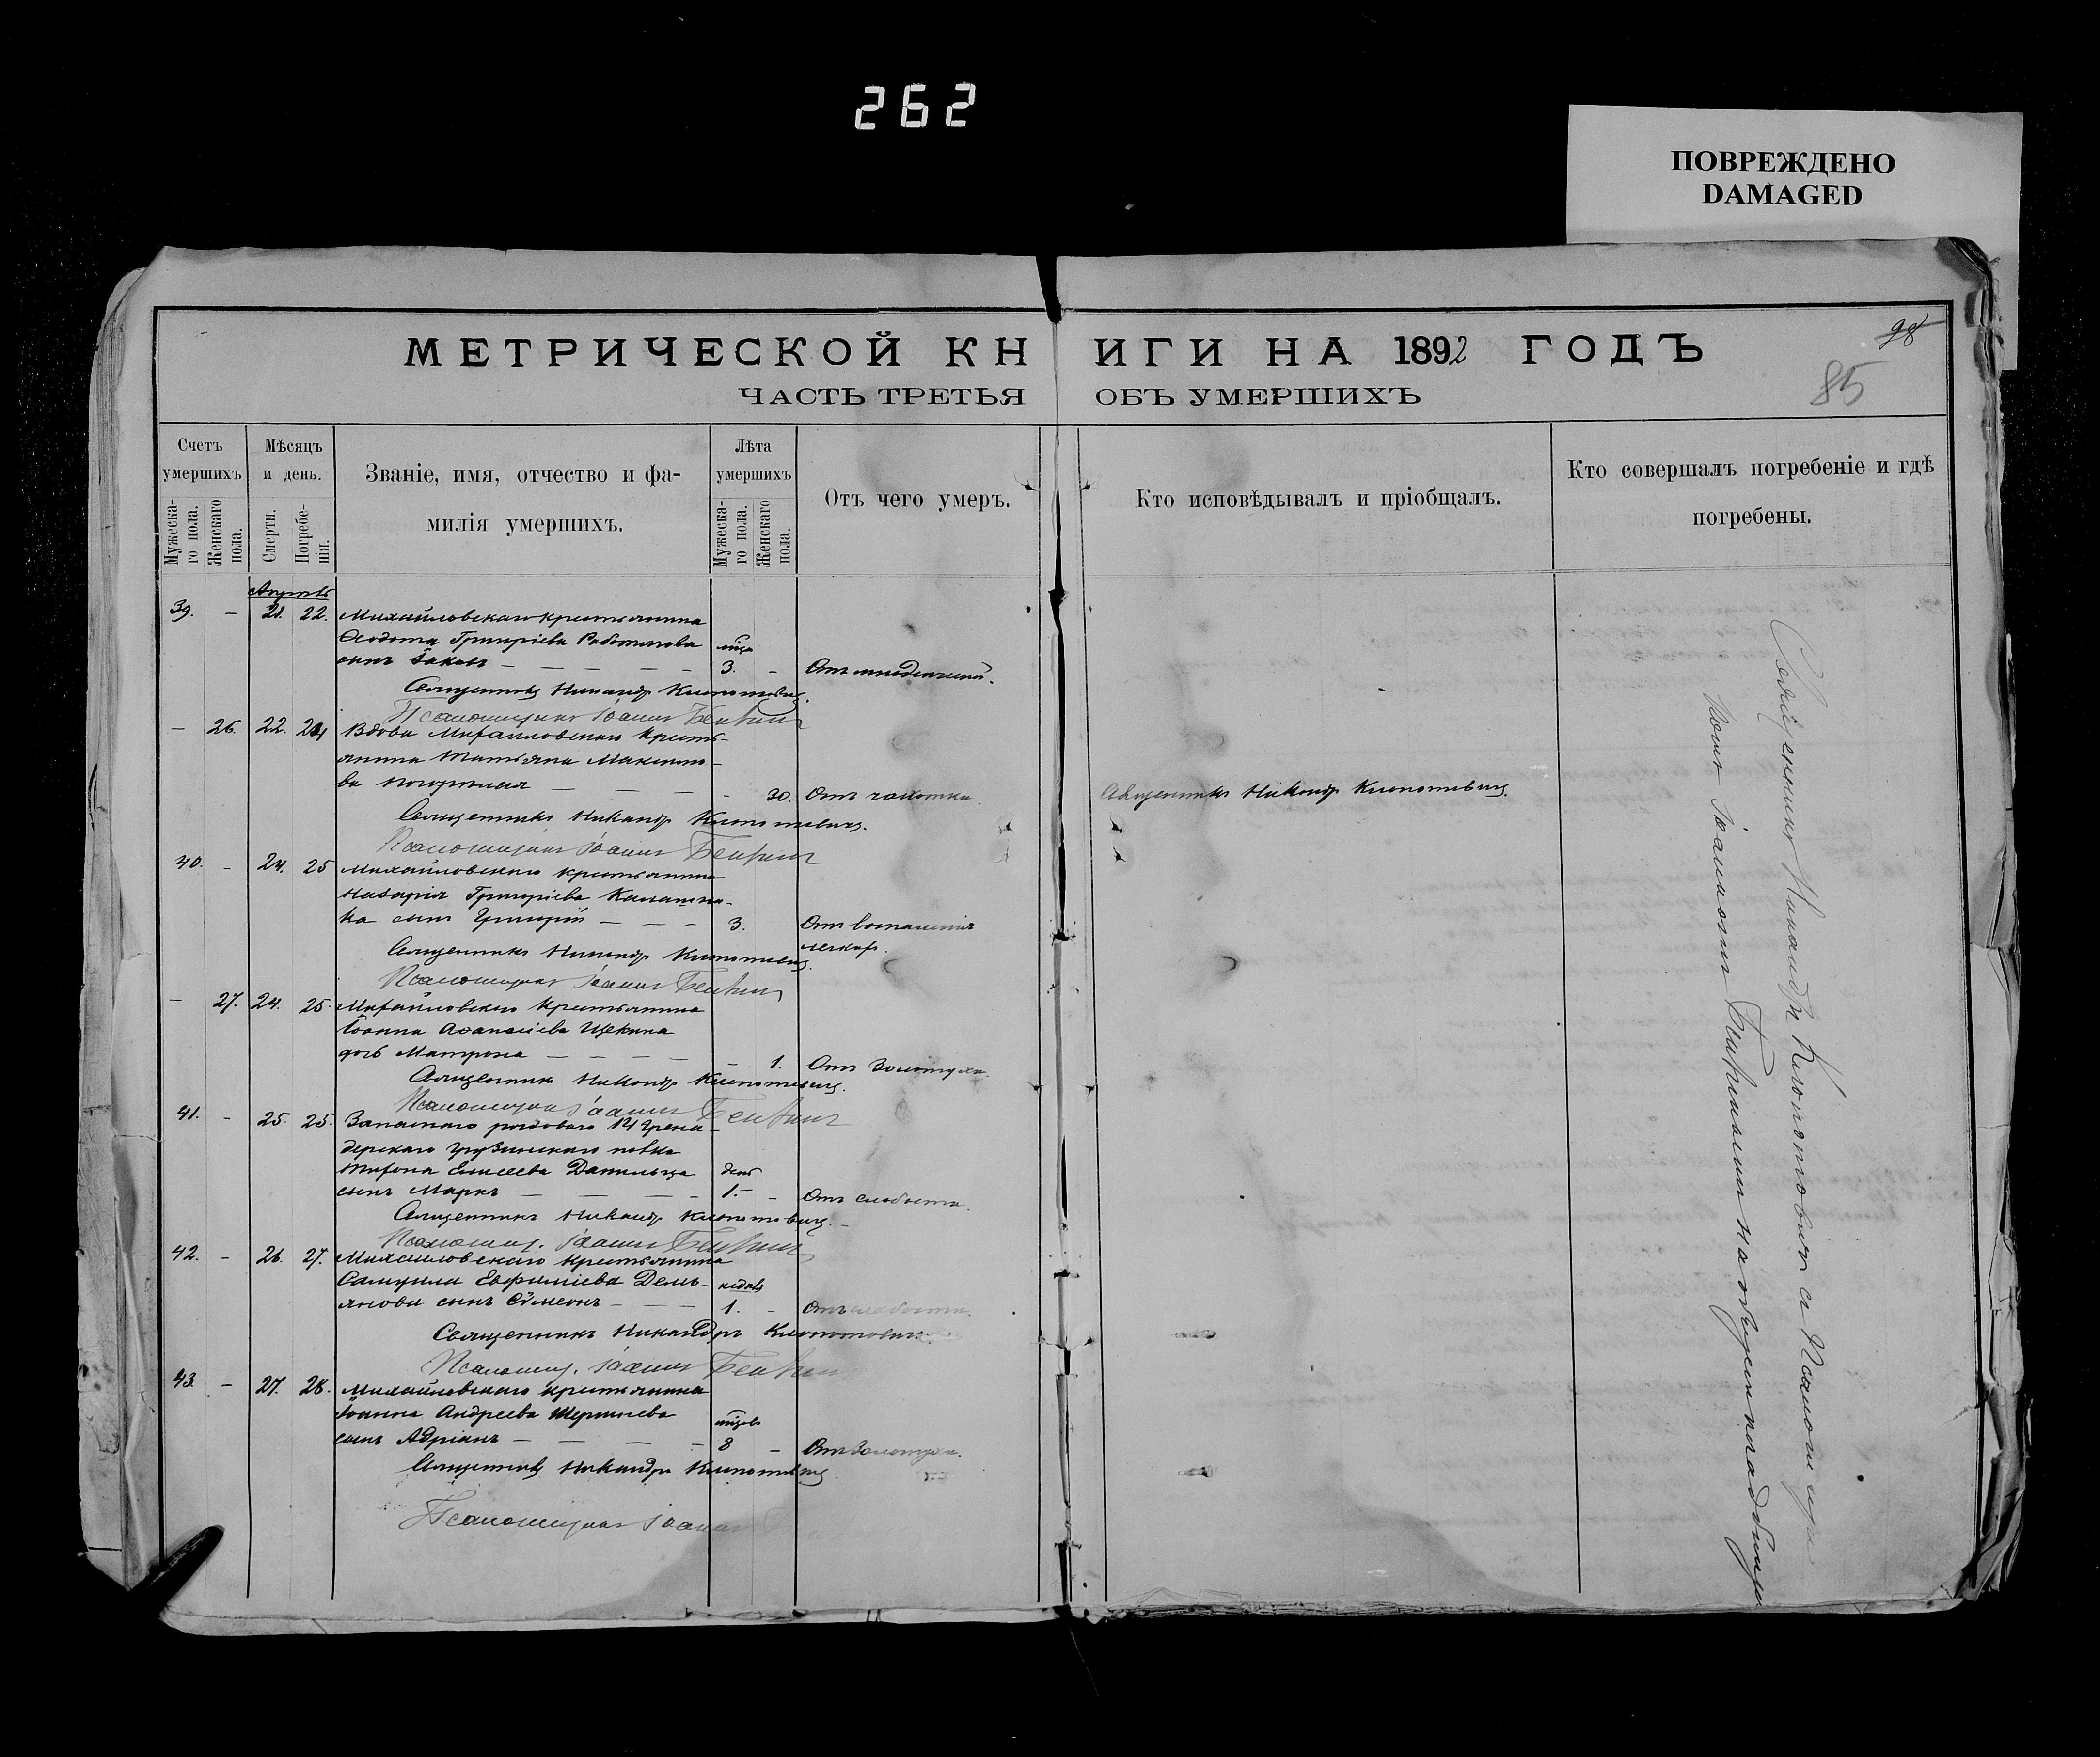 262
ПОВРЕЖДЕНО
DAMAGED
МЕТРИЧЕСКОЙ КНИГИ НА 1892 ГОДЪ
98
85
ЧАСТЬ ТРЕТЬЯ ОБЪ УМЕРШИХЪ
Счетъ умершихъ
Мѣсяцъ и день.
Званіе, имя, отчество и фамилія умершихъ.
Лѣта умершихъ
Отъ чего умеръ.
Кто исповѣдывалъ и пріобщалъ.
Кто совершалъ погребеніе и гдѣ погребены.
Мужескаго пола.
Женскаго пола.
Смерти.
Погребенія.
Мужескаго пола.
Женскаго пола.
Апрѣль
39. – 21. 22. Михайловскаго крестьянина
Ѳедота Григоріева
сынъ Іаковъ – 3. – Отъ младенческой.
Священникъ Никандръ Клопотовичъ.
Псаломщикъ Іоаннъ
– 26. 22. 24 Вдова Михайловскаго крестьянина
Татьяна Максимова
– 30. Отъ чахотки. Священникъ Никандръ Клопотовичъ.
Священникъ Никандръ Клопотовичъ.
Псаломщикъ Іоаннъ
40. – 24. 25 Михайловскаго крестьянина
Назарія Григоріева
сынъ Григорій – 3. Отъ воспаленія
легкихъ.
Священникъ Никандръ Клопотовичъ.
Псаломщикъ Іоаннъ
– 27. 24. 25. Михайловскаго крестьянина
Іоанна Аѳанасіева Щекина
дочь Матрона – 1. Отъ золотухи.
Священникъ Никандръ Клопотовичъ.
Псаломщикъ Іоаннъ
41. – 25. 25. Запаснаго рядоваго 14 Гренадерскаго
Грузинскаго полка
Елисеева Данильца день
сынъ Маркъ – 1. – Отъ слабости.
Священникъ Никандръ Клопотовичъ.
Псаломщ. Іоаннъ
42. – 26. 27. Михайловскаго крестьянина
Самуила Евфиміева Демьянова
сынъ Сѵмеонъ – 1. – Отъ слабости.
Священникъ Никандръ Клопотовичъ.
Псаломщ. Іоаннъ
43. – 27. 28. Михайловскаго крестьянина
Іоанна Андреева
сынъ Адріанъ – 8 – Отъ золотухи.
Священникъ Никандръ Клопотовичъ.
Псаломщикъ Іоаннъ
Священникъ Никандръ Клопотовичъ съ Псаломщикомъ
Іоанномъ на кладбищѣ